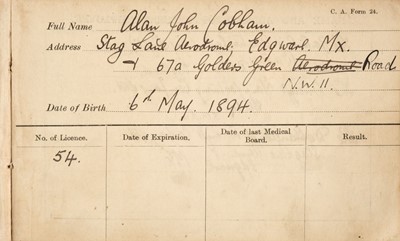 C. A. Form 24.
Full Name Alan John Cobham.
Address Stag Lane Aerodrome, Edgware. Mx.
67a Golders Green Aerodrome Road
N.W. 11.
Date of Birth 6th May. 1894.
No. of Licence. Date of Expiration. Date of last Medical Board. Result.
54.